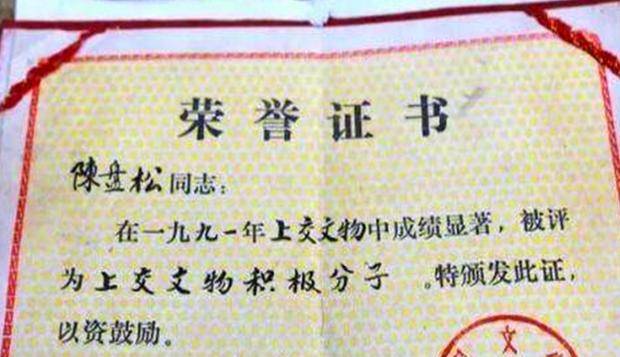 荣誉证书
陳盘松同志：
在一九九一年上交文物中成绩显著，被评
为上交文物积极分子。特颁发此证，
以资鼓励。
文